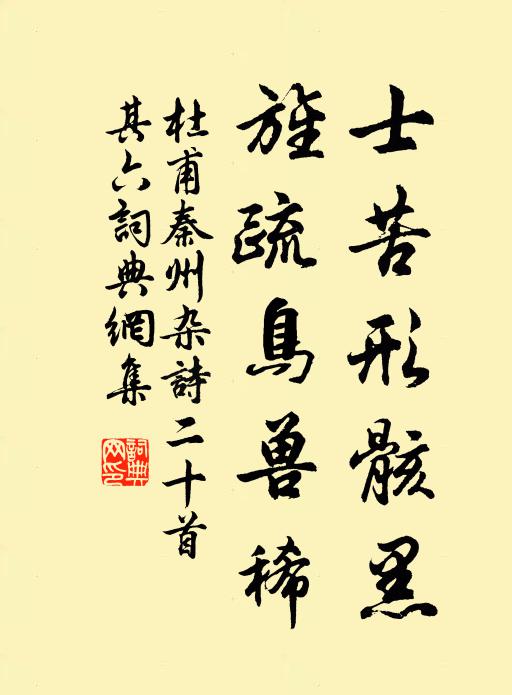 士苦形骸黑
旌疏鸟兽稀
杜甫秦州杂詩二十首
其六詞典網集
詞典网印